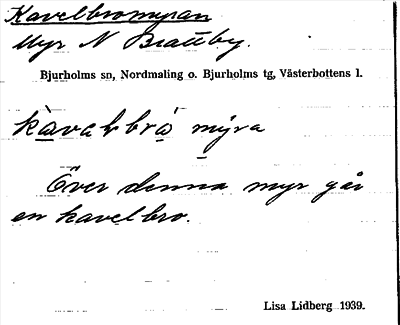 Kavelbromyran
Myr N Brattby.
Bjurholms sn, Nordmaling o. Bjurholms tg, Västerbottens l.
kàvahbrå mýra
Över denna myr går
en kavelbro.
Lisa Lidberg 1939.